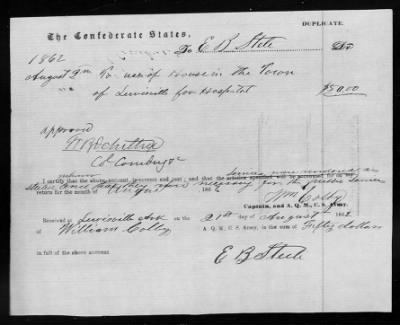 DUPLICATE.
The Confederate States,
To E B Stele Dr.
1862
August 2 To use of House in the Town
of Lewisville for Hospital $50.00
approved
Col Comdg
I certify that the above account is correct and just; that the services were rendered as
stated and that they were necessary for the public service
return for the month of August 186
Wm Colby
Captain, and A. Q. M., C. S. Army.
Received at Lewisville Ark on the 21st of August 1862,
of William Colby A. Q. M., C. S. Army, in the sum of Fifty dollars
in full of the above account
E B Steele